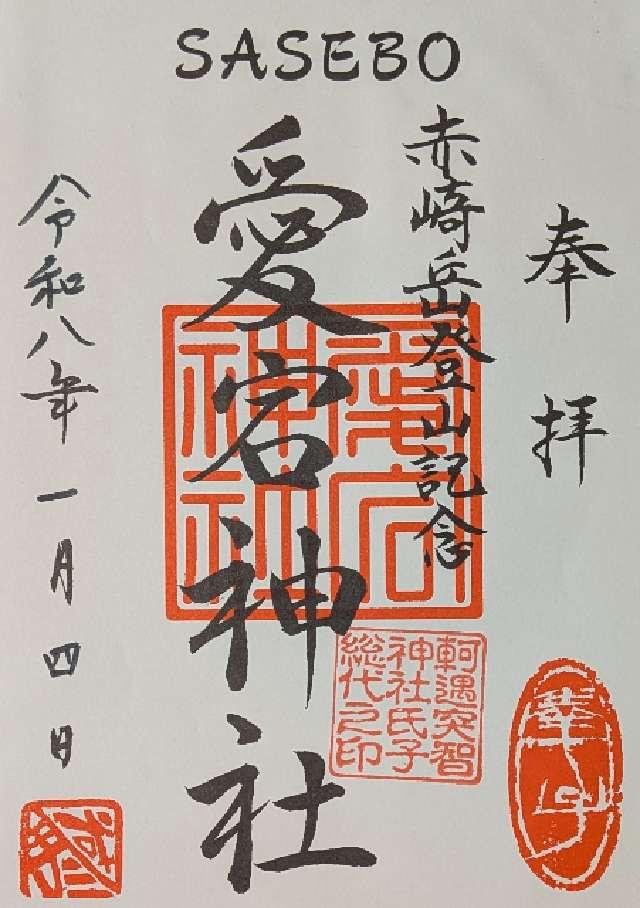 SASEBO
奉拝
赤崎岳登山記念
愛宕神社
愛宕神社
軻遇突智
神社氏子
総代之印
令和八年一月四日